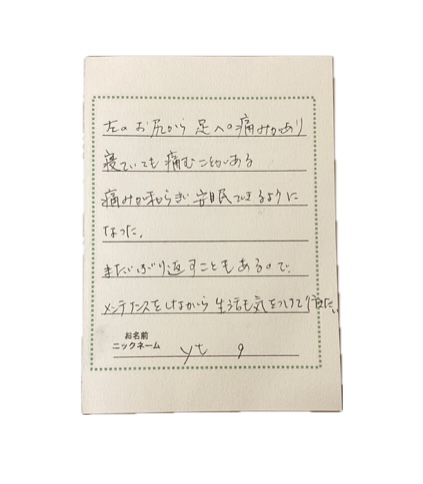 左のお尻から足への痛みがあり
寝ていても痛むことがある
痛みが和らぎ安眠できるように
なった。
まだぶり返すこともあるので、
メンテナンスをしながら生活も気をつけて行きたい
お名前
ニックネーム
yt 9